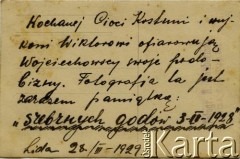 Kochanej Cioci Kostuni i wuj-
kowi Wiktorowi ofiarowują
Wojciechowscy swoje podo-
bizny. Fotografia ta jest
zarazem pamiątką:
"srebrnych godów 3-II-1928"
Lida 28/II-1929